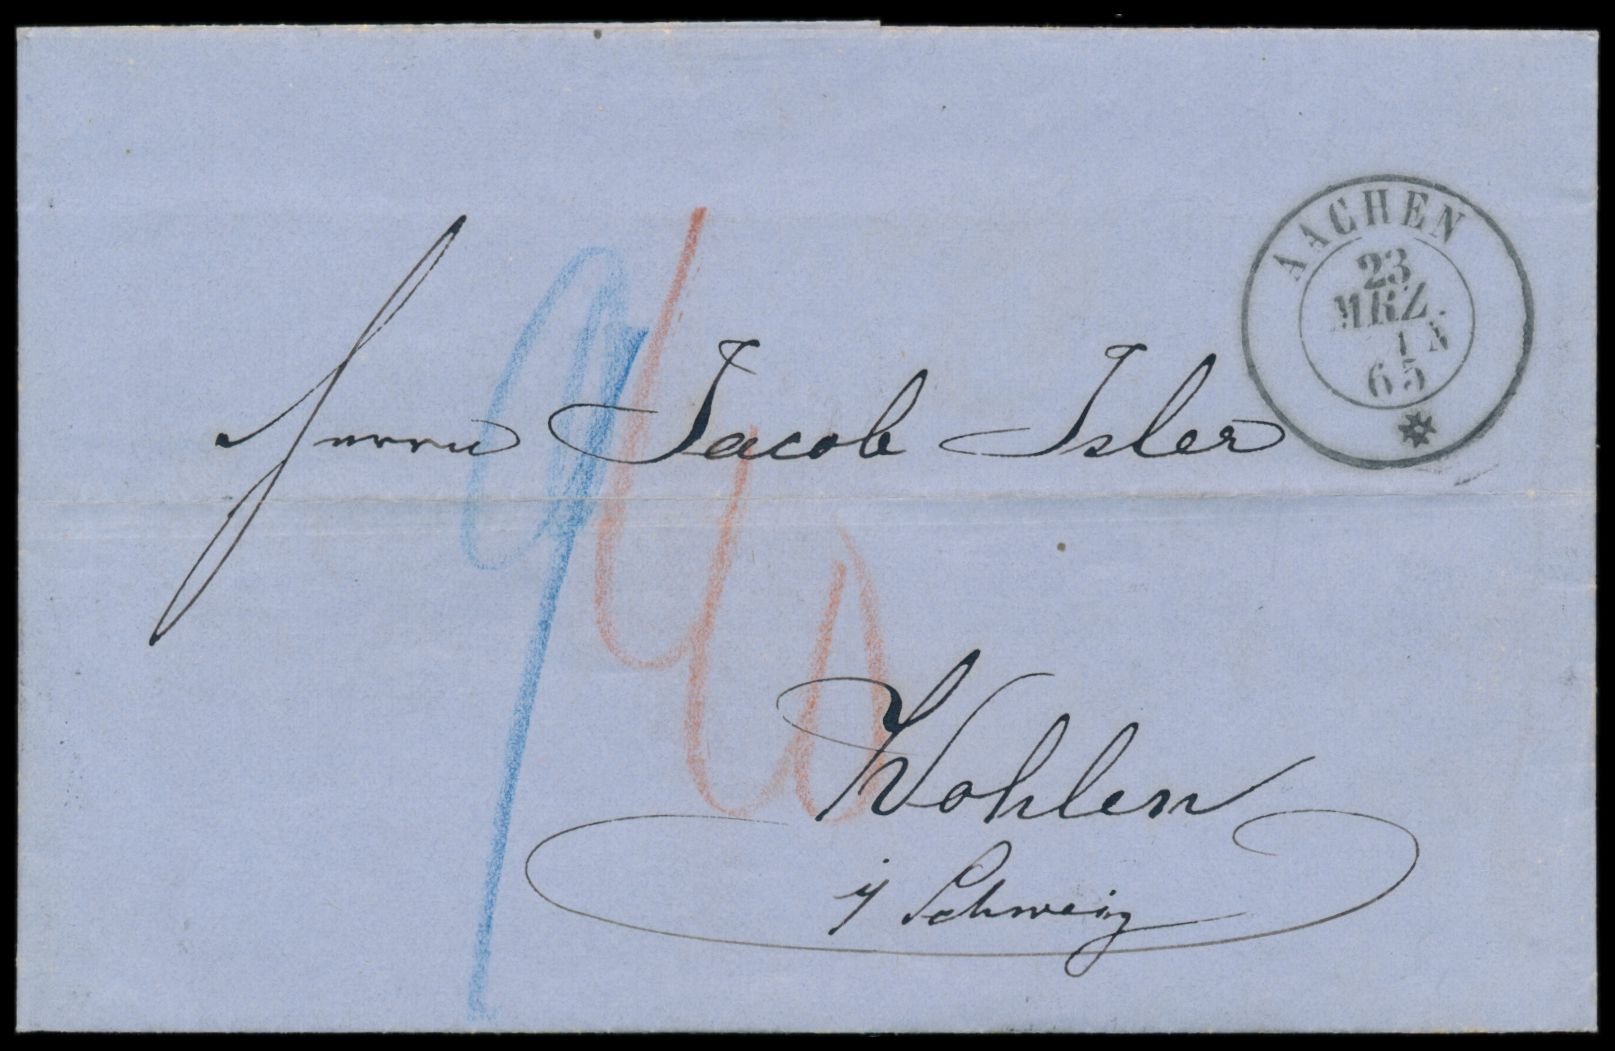 AACHEN
23
MRZ.
1 N
65
Herrn Jacob Isler
Wohlen
i/ Schweiz